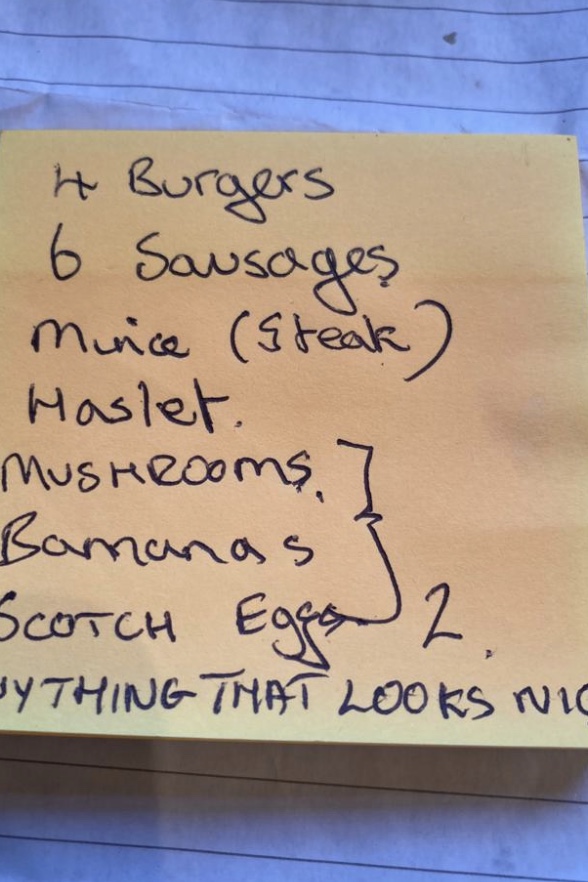 4 Burgers
6 Sausages
Mince (Steak)
Haslet.
MUSHROOMS.
Bananas
SCOTCH Eggs 2.
NYTHING THAT LOOKS NIC